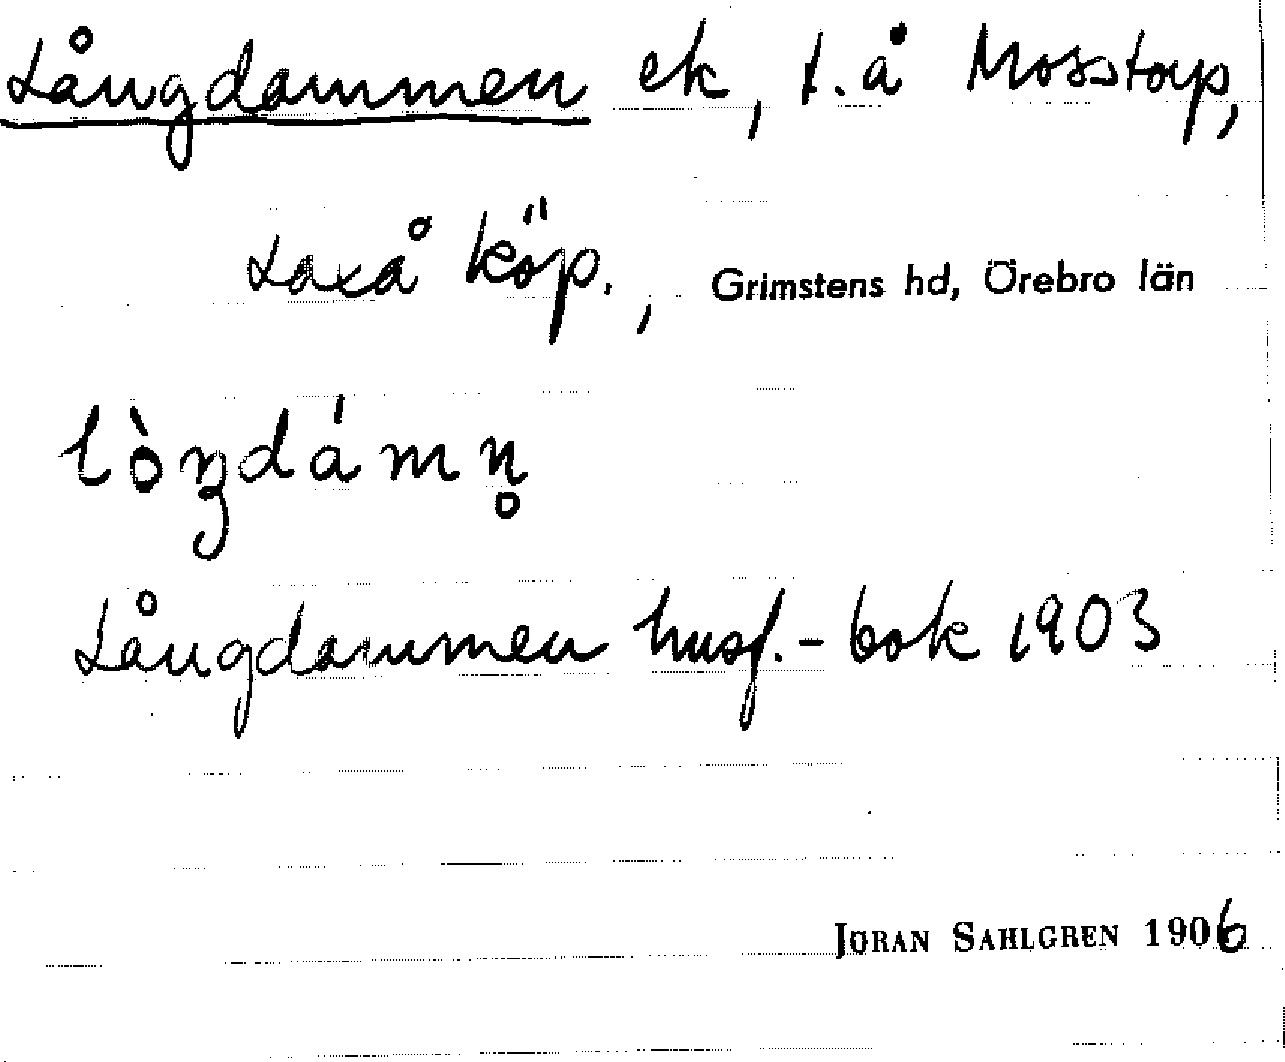 Långdammen ek, t. å Mosstorp,
Laxå köp., Grimstens hd, Örebro län
lòŋdámn̥
Långdammen husf.-bok 1903
JÖRAN SAHLGREN 1906